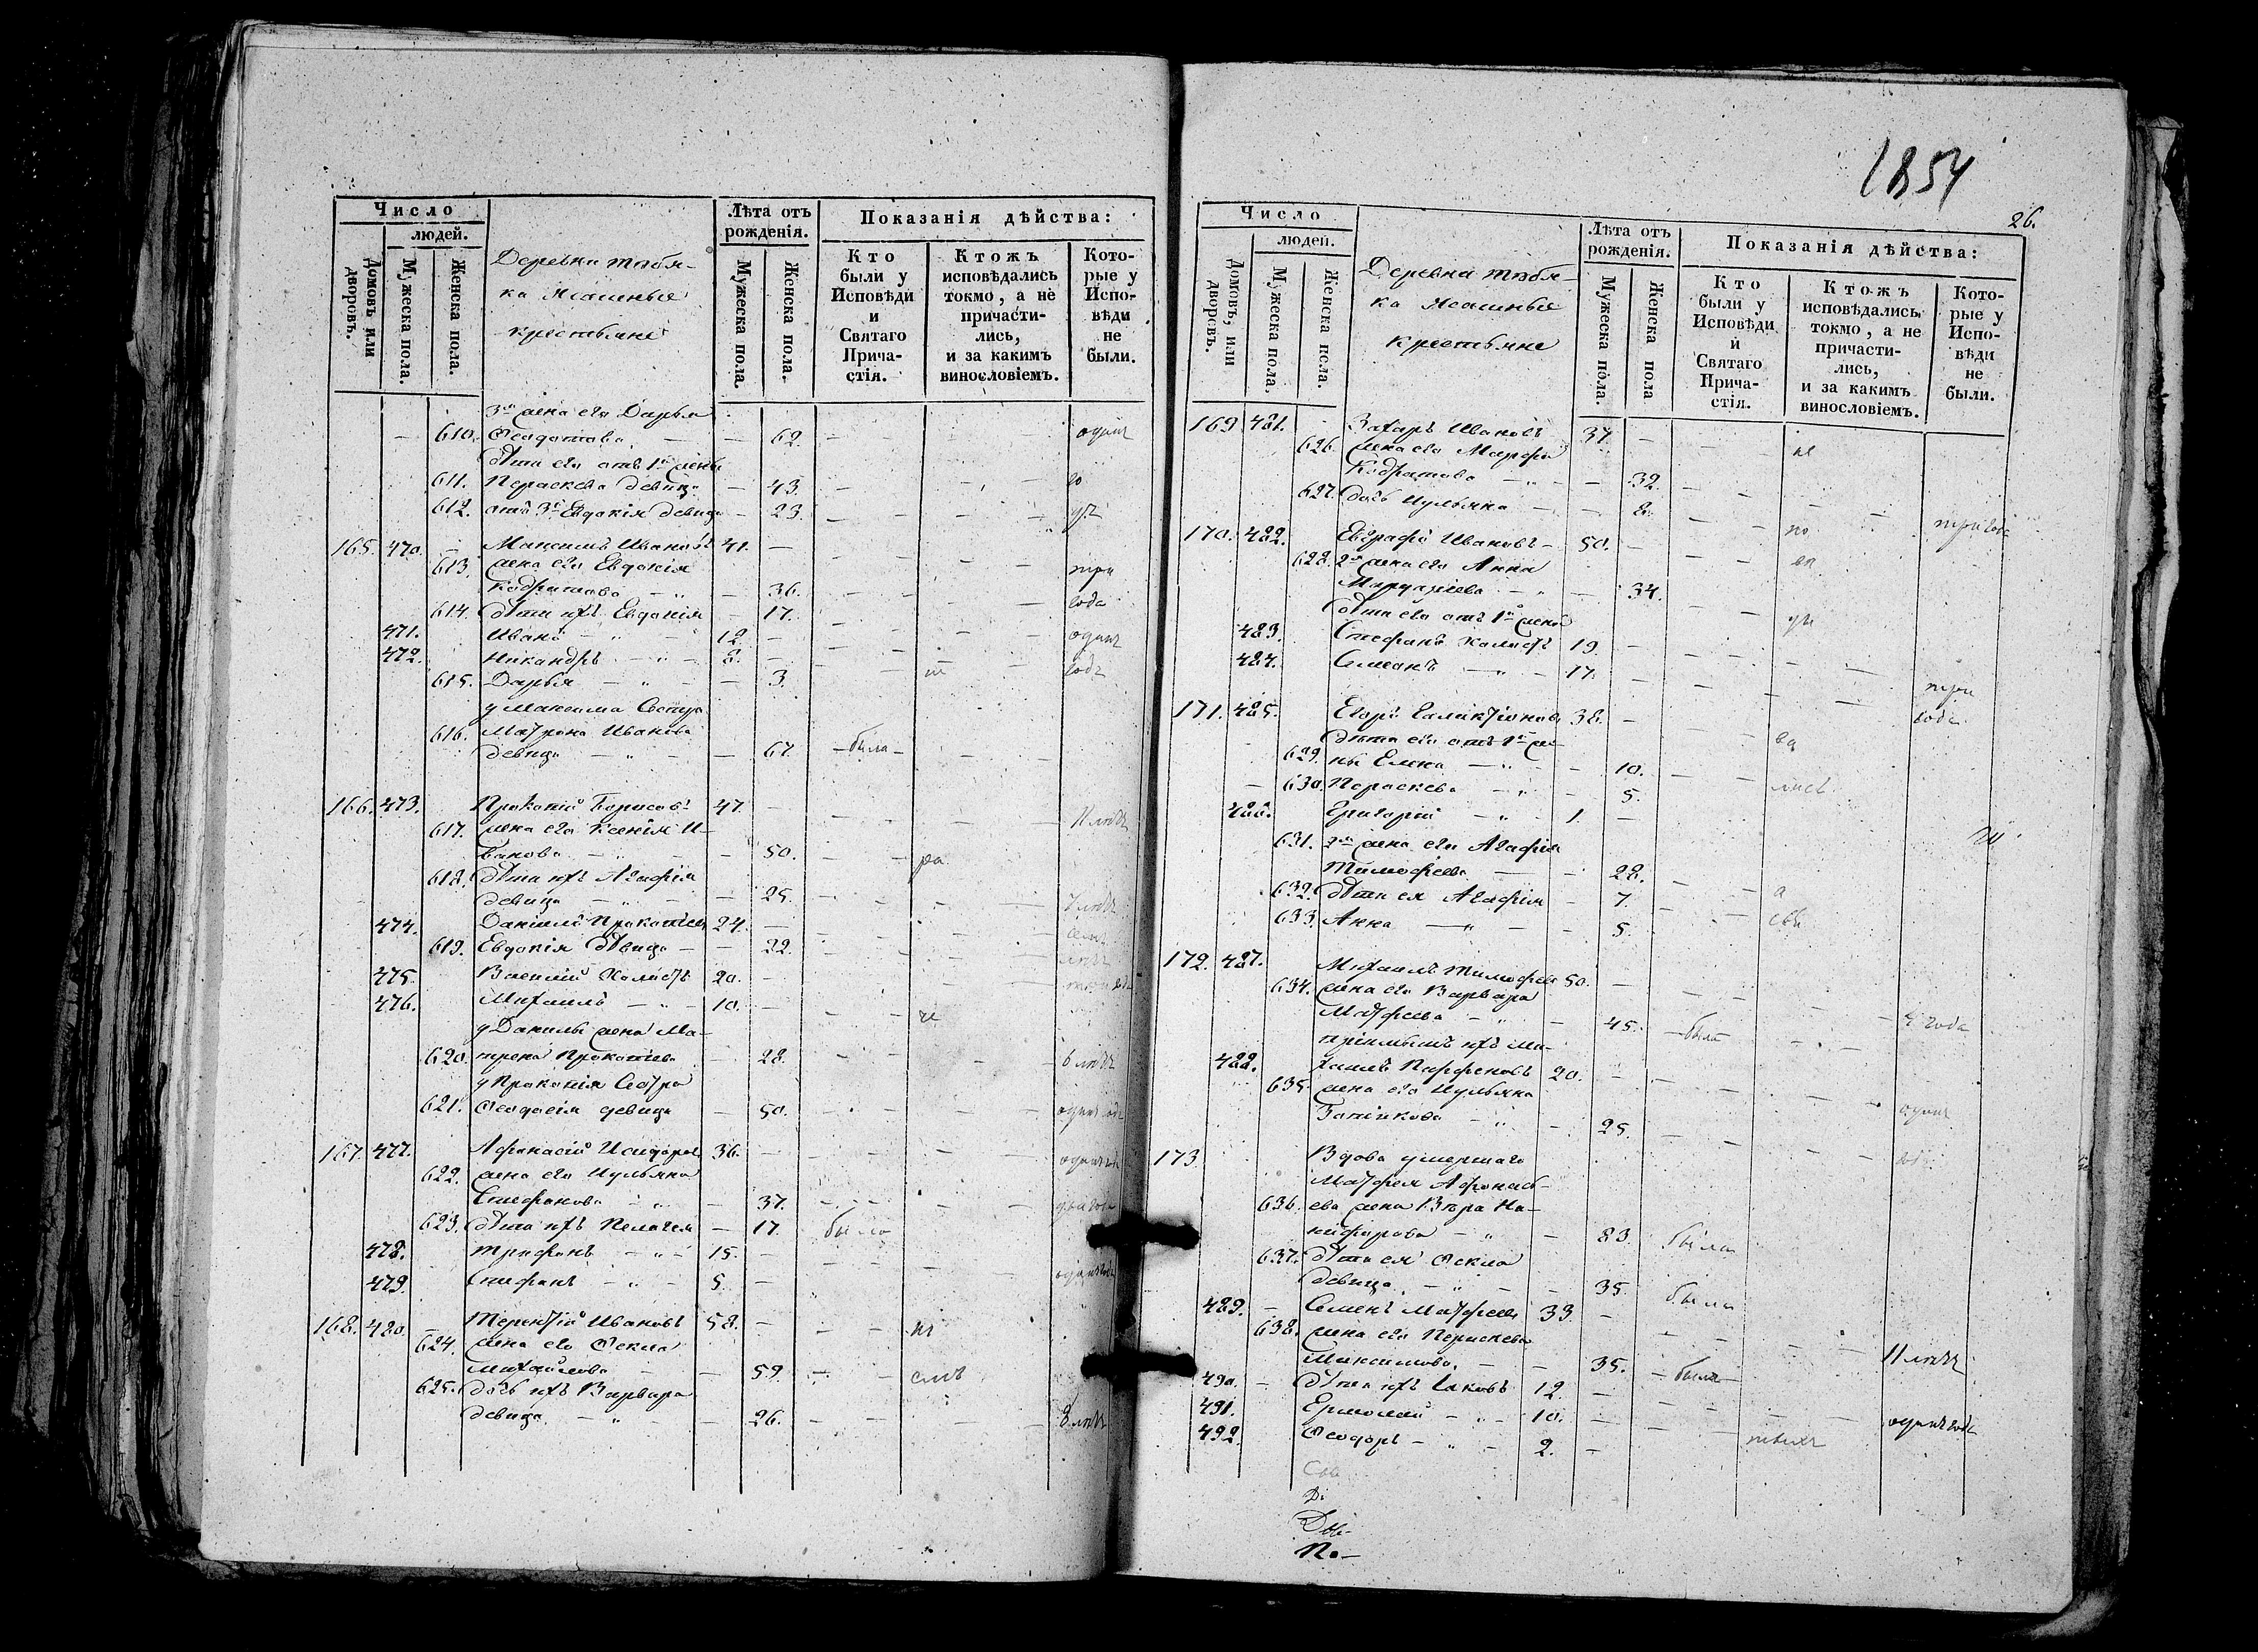 Число
людей.
Домовъ или дворовъ.
Мужеска пола.
Женска пола.
Деревни
ка Ясашные
крестьяне
Лѣта отъ рожденія.
Мужеска пола.
Женска пола.
Показанія дѣйства:
Кто были у Исповѣди и Святаго Прича- стія.
Ктожъ исповѣдались токмо, а не причасти- лись, и за какимъ винословіемъ.
Кото- рые у Испо- вѣди не были.
3я жена его Дарья
610. Феодотова — — 62. — — одинъ
дѣти его отъ 1й жены
611. Параскева девица — 43. —
612. отъ 3й Евдокія девица — 23. — —
165. 470. — Максимъ Ивановъ 41. —
613. жена его Евдокія три
Кодратова — — 36. — года
614. дѣти ихъ Евдокія — 17. —
471. Иванъ — 12. — одинъ
472. Никандръ — 8. — годъ
615. Дарья — — 3.
у Максима Сестра
616. Матрона Иванова
девица — — 67. — была —
166. 473. Прокопій Борисовъ 47. — 11 лѣтъ
617. жена его Ксенія И-
ванова — — 50. — — ра
618. дѣти ихъ Агафія
девица — — 25. —
474. Даніилъ Прокопіевъ 24. —
619. Евдокія дѣвица — — 22.
475. Василій Холостъ 20. —
476. Михаилъ — 10. —
у Данилы жена Ма-
620. трена Прокопіева — 28. — 6 лѣтъ
у Прокопія Сестра
621. Феодосія девица — 50. — одинъ годъ
167. 477. Афанасій Исидоровъ 36. —
622. жена его Иульяна
Стефанова — — 37. —
623. дѣти ихъ Пелагея — 17. была
478. Трифонъ — 15. —
479. Стефанъ — 5. —
168. 480. — Терентій Ивановъ 58. —
624. жена его Фекла
Михайлова — — 59. —
625. дочь ихъ Варвара
девица — — 26. — — 8 лѣтъ
1854
26.
Число
людей.
Домовъ, или дворовъ.
Мужеска пола.
Женска пола.
Деревни
ка Ясашные
крестьяне
Лѣта отъ рожденія.
Мужеска пола.
Женска пола
Показанія дѣйства:
Кто были у Исповѣди и Святаго Прича- стія.
Ктожъ исповѣдались токмо, а не причасти- лись, и за какимъ винословіемъ.
Кото- рые у Испо- вѣди не были.
169 481. Захаръ Ивановъ 37. —
626. жена его Марфа
Кодратова — — 32. —
627. дочь Иульяна — — 8. три года
170. 482. Евграфъ Ивановъ — 50. — по
628. 2я жена его Анна
— — 34.
дѣти его отъ 1й жены
483. Стефанъ Холостъ 19. —
484. Симеонъ — 17. — три
171. 485. Егоръ Галактіоновъ 38. — года
дѣти его отъ 1й же-
629. ны Елена — — 10.
630. Параскева — — 5. лись
486. Григорій — 1. —
631. 2я жена его Агафія
Тимофеева — — 28.
632. дѣти ея Агафія — 7.
633. Анна — — 5.
172. 487. Михаилъ Тимофеевъ 50. —
634. жена его Варвара
Матфеева — — 45. — была — 4 года
пріемышъ ихъ Ми-
488. хаилъ Парфеновъ 20. —
635. жена его Иульяна одинъ
— 25.
173. Вдова умершаго
Матфея Афонась-
636. ева жена Вѣра Ни-
кифорова — — 83. была
637. дѣти ея Фекла
девица — — 35. была
489. — Семенъ Матфеевъ 33. —
638. жена его Параскева
Максимова — — 35. — была — 11 лѣтъ
490. — дѣти ихъ Іаковъ 12. —
491. Ермолай — 10. — одинъ годъ
492. Феодоръ — 2. —